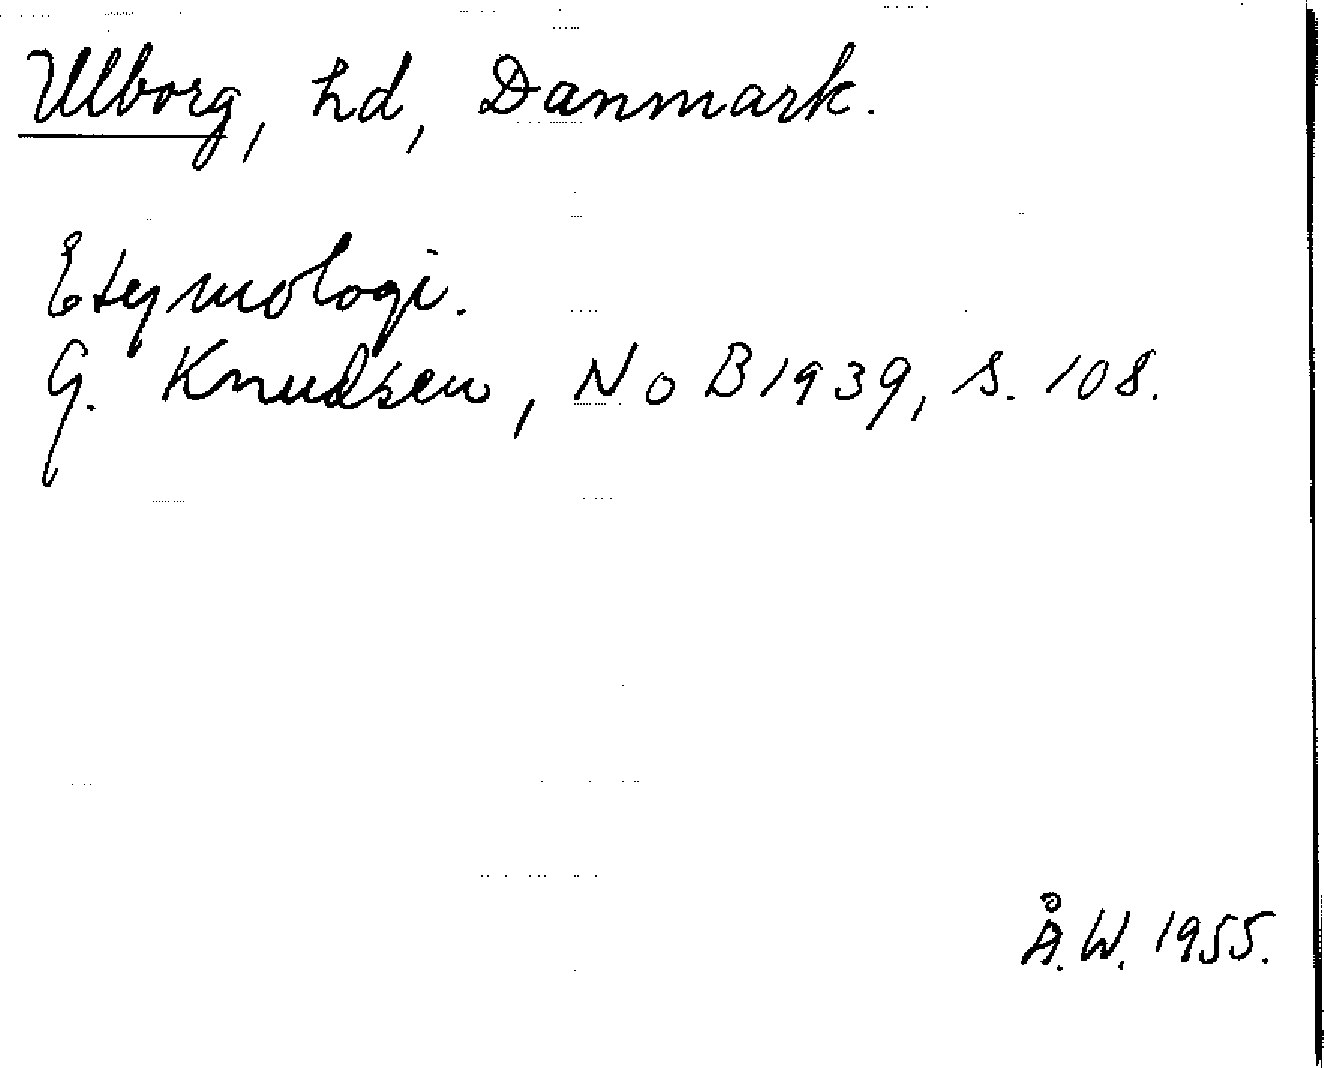 Ulborg, hd, Danmark.
Etymologi.
G. Knudsen, NoB 1939, s. 108.
Å.W. 1955.